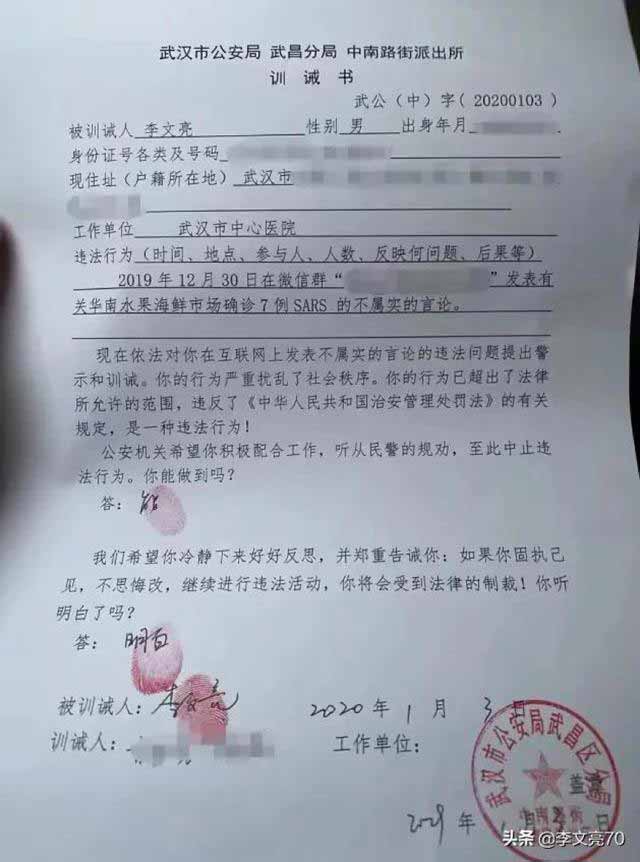 武汉市公安局 武昌分局 中南路街派出所
训 诫 书
武公（中）字( 20200103 )
被训诫人 李文亮 性别 男 出身年月
身份证号各类及号码
现住址（户籍所在地） 武汉市
工作单位 武汉市中心医院
违法行为（时间、地点、参与人、人数、反映何问题、后果等）
2019年12月30日在微信群“ ”发表有
关华南水果海鲜市场确诊7例SARS的不属实的言论。
现在依法对你在互联网上发表不属实的言论的违法问题提出警
示和训诫。你的行为严重扰乱了社会秩序。你的行为已超出了法律
所允许的范围，违反了《中华人民共和国治安管理处罚法》的有关
规定，是一种违法行为！
公安机关希望你积极配合工作，听从民警的规劝，至此中止违
法行为。你能做到吗？
答：能
我们希望你冷静下来好好反思，并郑重告诫你：如果你固执己
见，不思悔改，继续进行违法活动，你将会受到法律的制裁！你听
明白了吗？
答：明白
被训诫人：李文亮 2020年1月3日
训诫人： 工作单位：
武汉市公安局武昌区分局
盖章
年 月 日
头条 @李文亮70